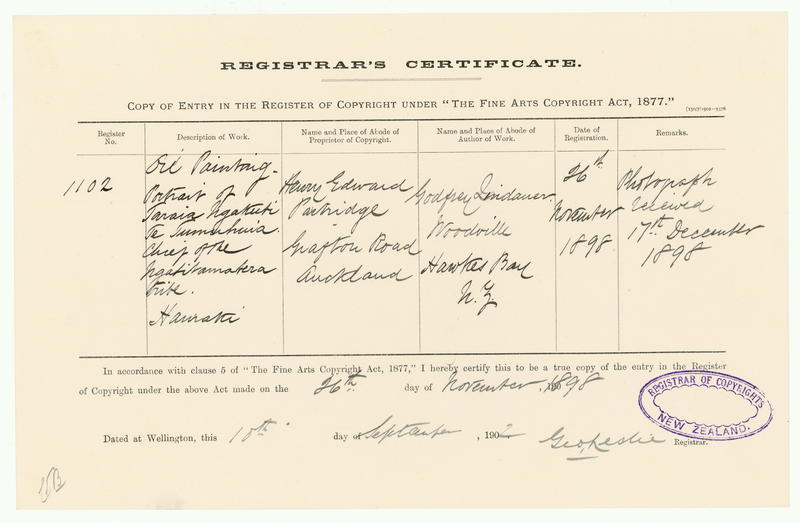 REGISTRAR'S CERTIFICATE.
COPY OF ENTRY IN THE REGISTER OF COPYRIGHT UNDER "THE FINE ARTS COPYRIGHT ACT, 1877."
Register No.
Description of Work.
Name and Place of Abode of Proprietor of Copyright.
Name and Place of Abode of Author of Work.
Date of Registration.
Remarks.
1102
Oil Painting.
Portrait of
Taraia Ngakuti
Te Tumuhuia.
Chief of the
Ngatitamatera
tribe.
Hauraki
Henry Edward
Partridge
Grafton Road
Auckland
Godfrey Lindauer
Woodville
Hawkes Bay
N.Z.
26th
November
1898
Photograph
received
17th December
1898
In accordance with clause 5 of "The Fine Arts Copyright Act, 1877," I hereby certify this to be a true copy of the entry in the Register
of Copyright under the above Act made on the 26th day of November, 1898
Dated at Wellington, this 10th day of September, 1902
Geo Leslie Registrar.
REGISTRAR OF COPYRIGHTS
NEW ZEALAND.